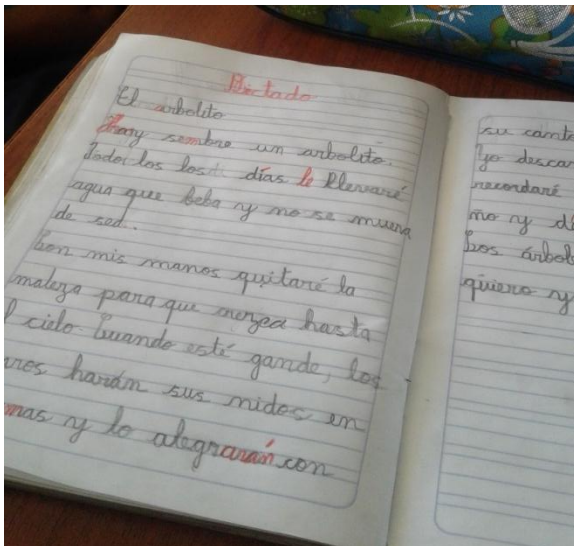 Dictado
El arbolito
Hoy sembre un arbolito.
Todos los los días le llevaré
agua que beba y no se muera
de sed.
Con mis manos quitaré la
maleza para que crezca hasta
l cielo. Cuando esté gande, los
aros harán sus nidos en
mas y lo alegrarán con
su canto
yo descan
recordaré
ño y dí
Los árbol
quiero y